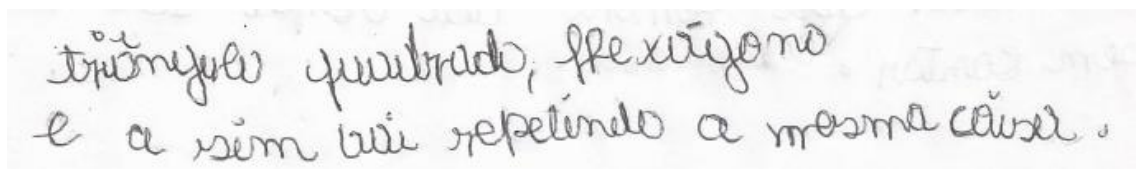 triângulo quadrado, hexágono
e a sim vai repetindo a mesma causa.